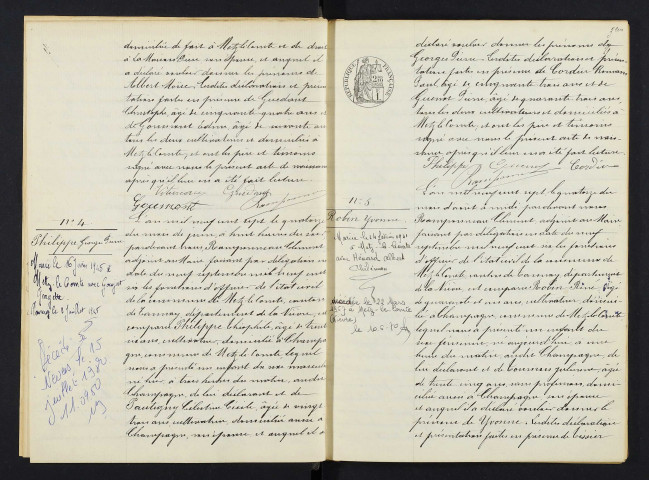 domiciliée de fait à Metz le Comte et de droit
à la Maison Dieu son épouse, et auquel il
a déclaré vouloir donner les prénoms de
Albert Pierre. Lesdites déclarations et présen
tations faites en présence de
Christophe, âgé de cinquante quatre ans et
de Goujmont âgé de soixante ans
tous les deux cultivateurs et domiciliés à
Metz le Comte, et ont les père et témoins
signé avec nous le présent acte de naissance
après qu'il leur en a été fait lecture.
Goujmont
N° 4
Philippe Georges Pierre
L'an mil neuf cent sept le quatorze
du mois de juin, à huit heures du soir
par devant nous Rangonneau Clément
adjoint au Maire faisant par délégation en
date du neuf septembre mil neuf cent
six les fonctions d'officier de l'état civil de
la commune de Metz le Comte, canton
de Tannay, département de la Nièvre, est
comparu Philippe Théophile, âgé de trente
ans, cultivateur, domicilié à Champa
gne, commune de Metz le Comte lequel
nous a présenté un enfant du sexe masculin
né hier à trois heures du matin, audit
Champagne, de lui déclarant et de
Célestine Cécile, âgée de vingt
trois ans cultivatrice domiciliée aussi à
Champagne, son épouse et auquel il a
Marié le 16 juin 1925 à
Metz le Comte avec
Décédé à
Nevers le 15
juillet 1980
déclaré vouloir donner les prénoms de
Georges Pierre. Lesdites déclarations et présen
tations faites en présence de Cordier Romain
Paul, âgé de cinquante trois ans et de
Pierre, âgé de quarante trois ans,
tous les deux cultivateurs et domiciliés à
Metz le Comte, et ont les père et témoins
signé avec nous le présent acte de nais
sance après qu'il leur en a été fait lecture.
Philippe Cordier
RÉPUBLIQUE FRANÇAISE
N° 5
Robin Yvonne
L'an mil neuf cent sept le quatorze du
mois d'août à midi par devant nous
Rangonneau Clément adjoint au Maire
faisant par délégation en date du neuf
septembre mil neuf cent six les fonctions
d'officier de l'état civil de la commune de
Metz le Comte, canton de Tannay, département
de la Nièvre, est comparu Robin Pierre, âgé
de quarante et un ans, cultivateur, domicilié
à Champagne, commune de Metz le Comte
lequel nous a présenté un enfant du
sexe féminin, né aujourd'hui à une
heure du matin audit Champagne, de
lui déclarant et de Julienne, âgée
de trente cinq ans, sans profession, domi
ciliée aussi à Champagne son épouse
et auquel il a déclaré vouloir donner le
prénom de Yvonne. Lesdites déclaration
et présentation faites en présence de
Mariée le 14 février 1931
à Metz le Comte
avec albert
décédée le 22 Mars
à Metz-le-Comte
(Nièvre)